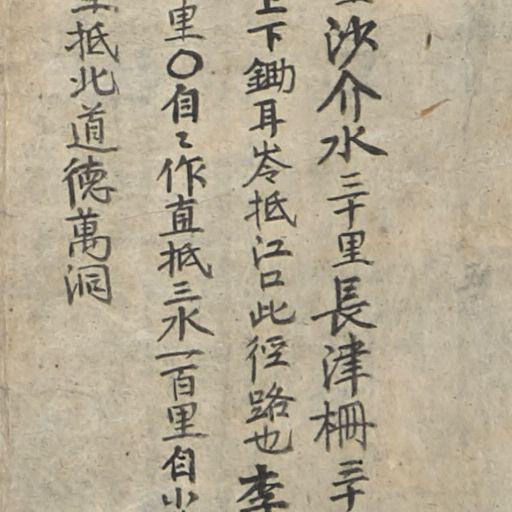 沙介水三十里長津柵三十
下鋤耳岺抵江口此徑路也李
里〇自〻作直抵三水一百里自
抵北道德萬洞